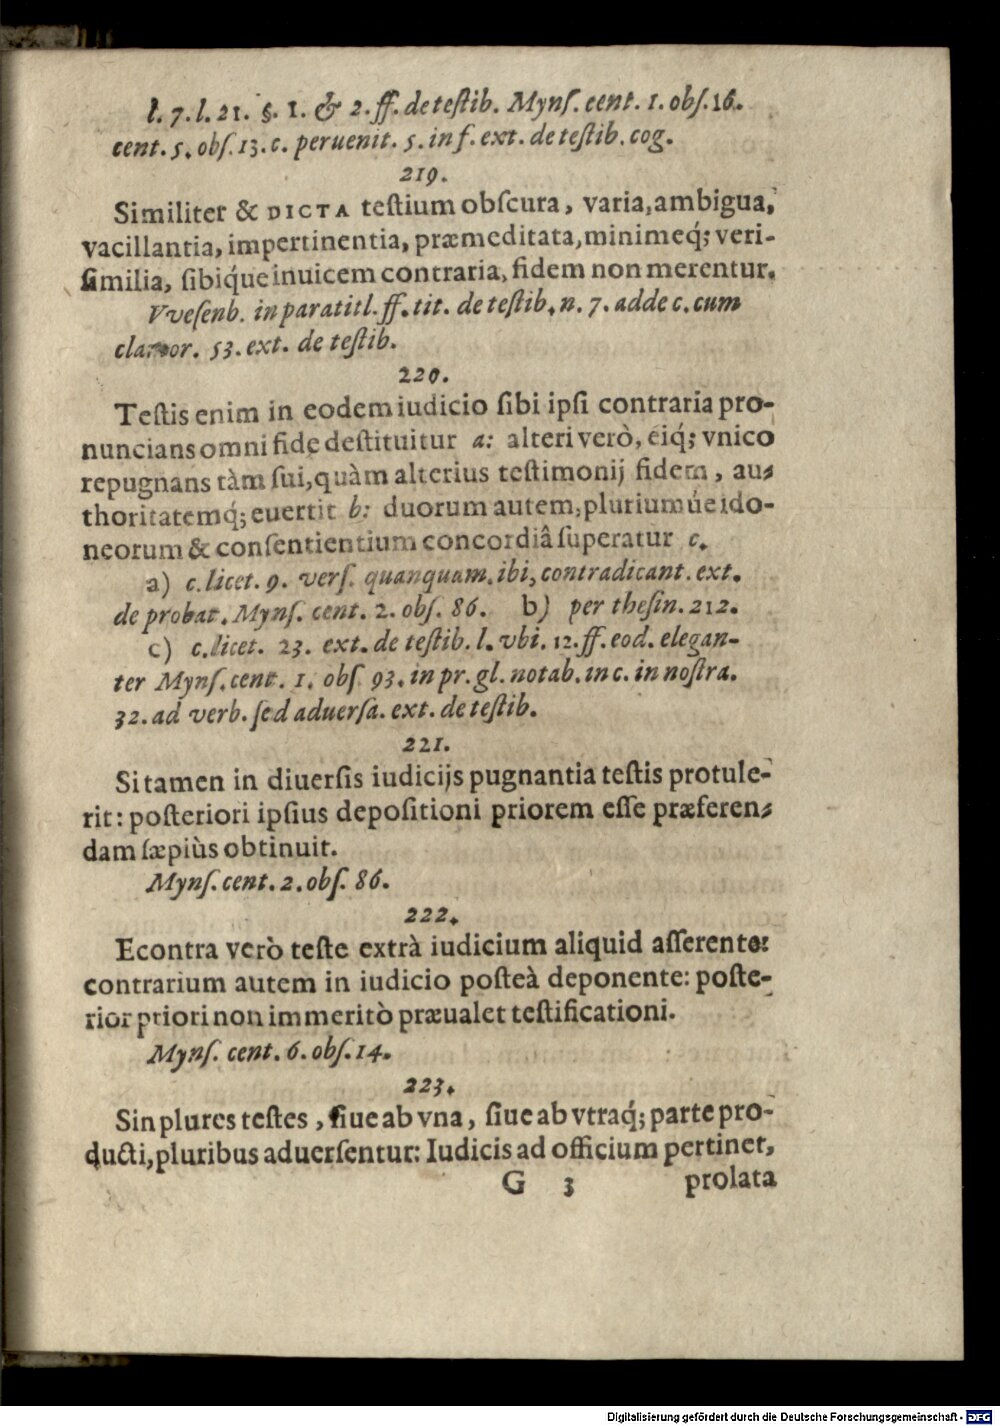 l. 7. l. 21. §. 1. & 2. ff. de teſtib. Mynſ. cent. 1. obſ. 16.
cent. 5. obſ. 13. c. peruenit. 5. in f. ext. de teſtib. cog.
219.
Similiter & DICTA teſtium obſcura, varia, ambigua,
vacillantia, impertinentia, præmeditata, minimeq́; veri-
ſimilia, ſibiq́ue inuicem contraria, fidem non merentur.
Vveſenb. in paratitl. ff. tit. de teſtib. n. 7. adde c. cum
clamor. 53. ext. de teſtib.
220.
Teſtis enim in eodem iudicio ſibi ipſi contraria pro-
nuncians omni fide deſtituitur a: alteri verò, eiq́; vnico
repugnans tàm ſui, quàm alterius teſtimonij fidem, au-
thoritatemq́; euertit b: duorum autem, pluriumúe ido-
neorum & conſentientium concordiâ ſuperatur c.
a) c. licet. 9. verſ. quanquam. ibi, contradicant. ext.
de probat. Mynſ. cent. 2. obſ. 86. b) per theſin. 212.
c) c. licet. 23. ext. de teſtib. l. vbi. 12. ff. eod. elegan-
ter Mynſ. cent. 1. obſ. 93. in pr. gl. notab. in c. in noſtra.
32. ad verb. ſed aduerſa. ext. de teſtib.
221.
Si tamen in diuerſis iudicijs pugnantia teſtis protule-
rit: poſteriori ipſius depoſitioni priorem eſſe præferen-
dam ſæpiùs obtinuit.
Mynſ. cent. 2. obſ. 86.
222.
Econtra verò teſte extrà iudicium aliquid aſſerente:
contrarium autem in iudicio poſteà deponente: poſte-
rior priori non immeritò præualet teſtificationi.
Mynſ. cent. 6. obſ. 14.
223.
Sin plures teſtes, ſiue ab vna, ſiue ab vtraq́; parte pro-
ducti, pluribus aduerſentur: Iudicis ad officium pertinet,
G 3 prolata
Digitalisierung gefördert durch die Deutsche Forschungsgemeinschaft - DFG